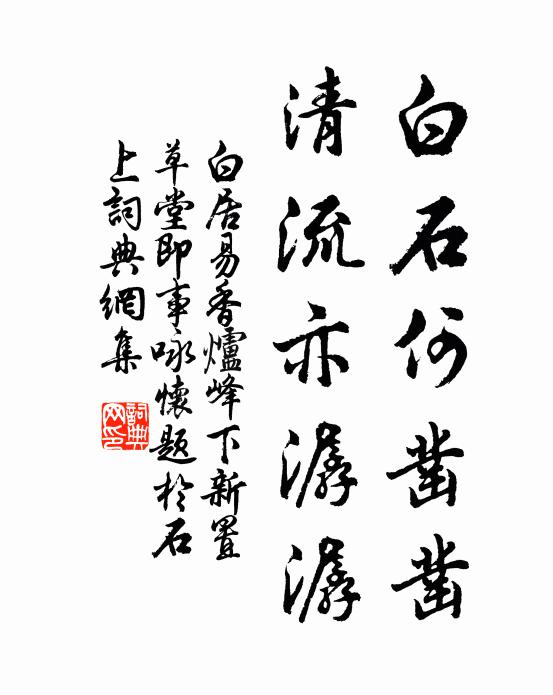 白石何鑿鑿
清流亦潺潺
白居易香爐峰下新置
草堂即事咏懷题於石
上詞典網集
詞典网印